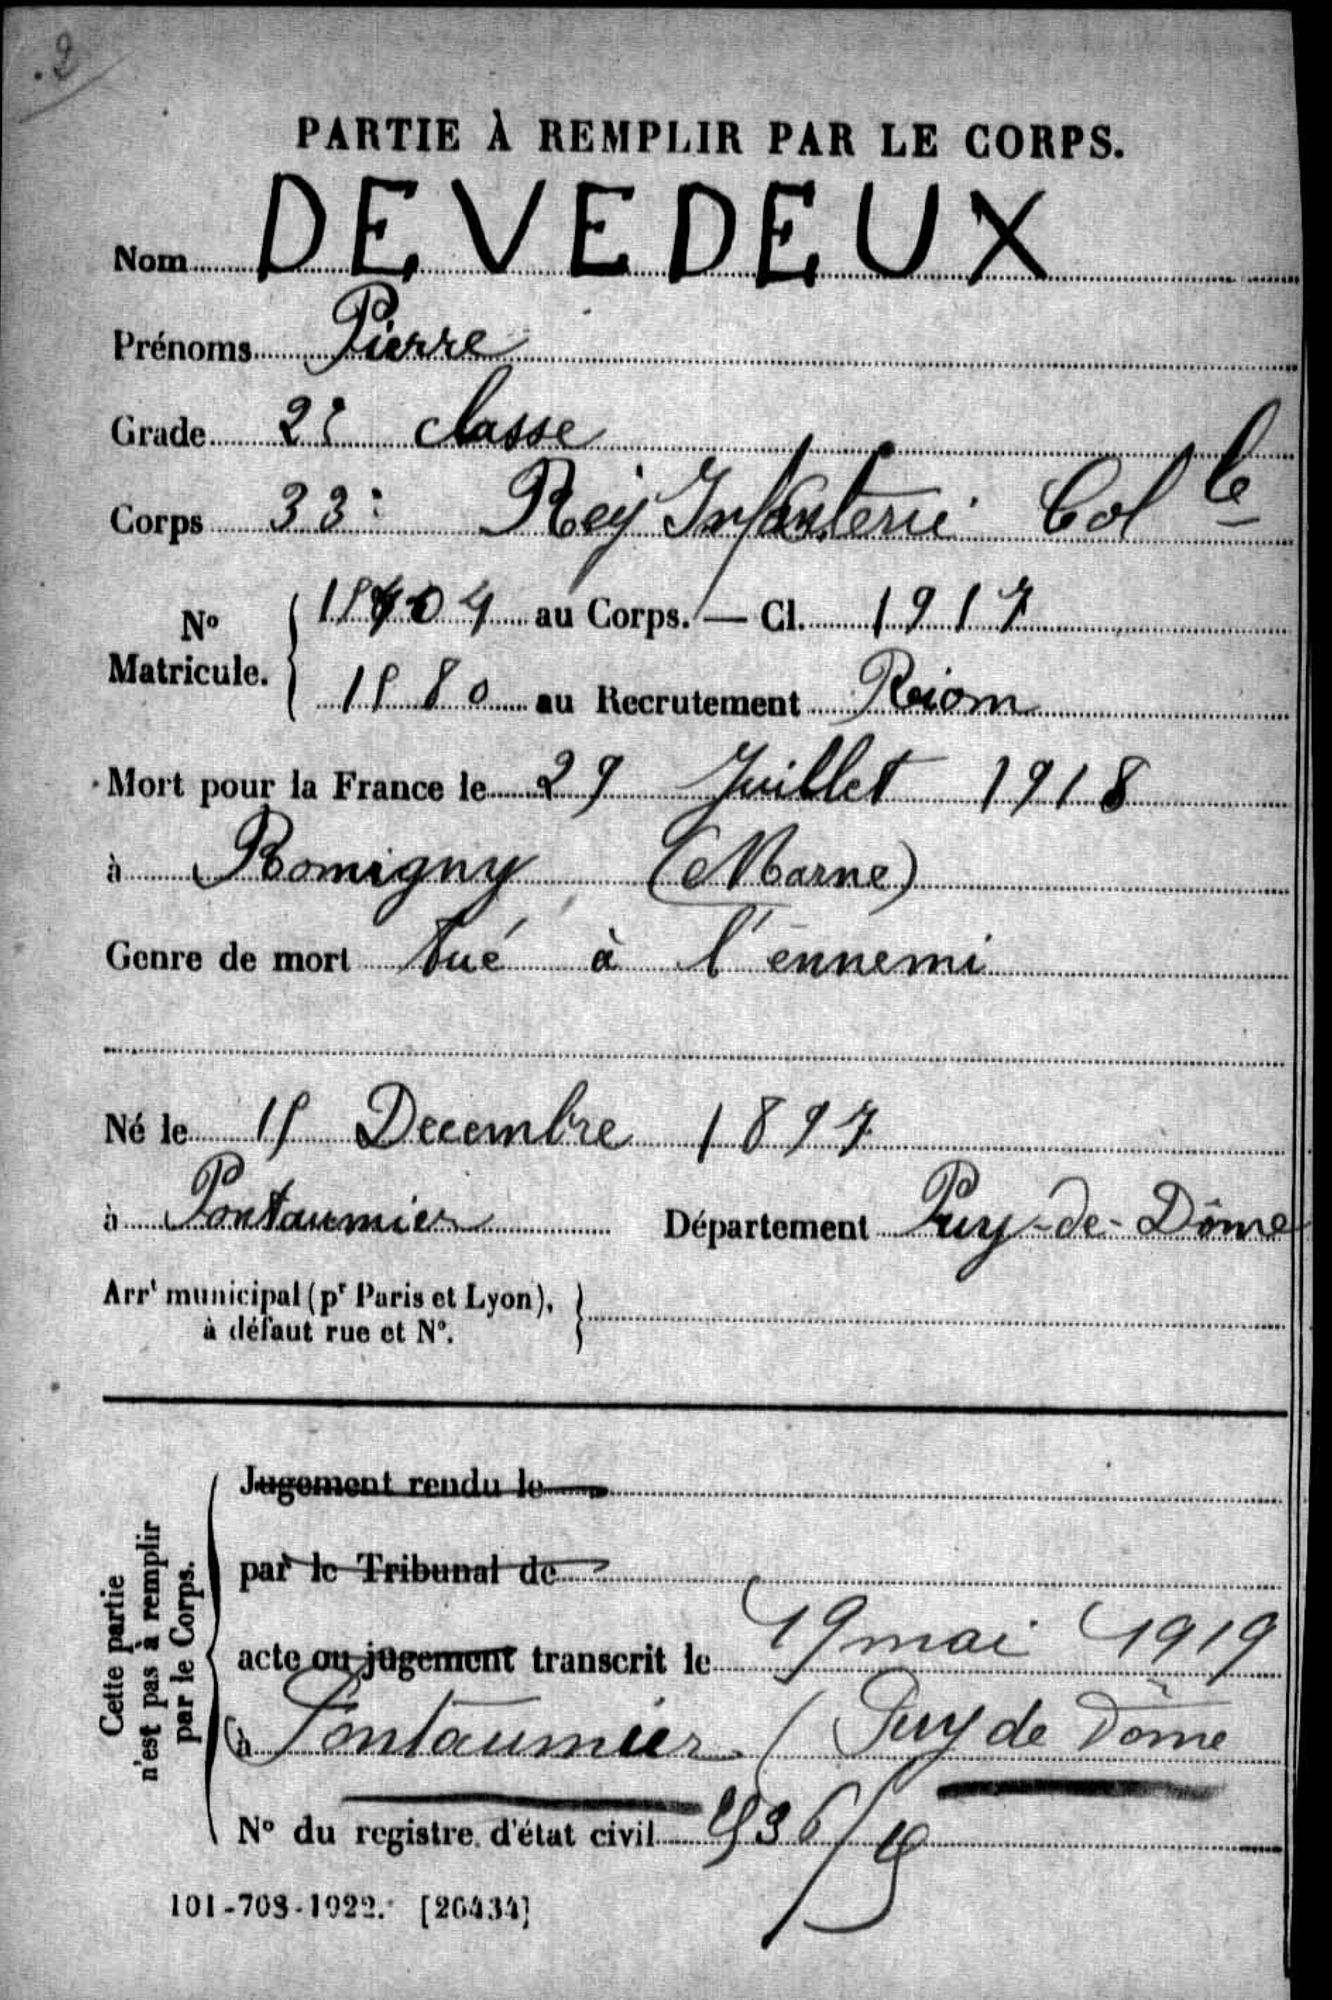 .2
PARTIE À REMPLIR PAR LE CORPS.
Nom DEVEDEUX
Prénoms Pierre
Grade 2e classe
Corps 33e Reg Infanterie Colle
No Matricule. au Corps. — Cl. 1917
1580 au Recrutement Riom
Mort pour la France le 29 Juillet 1918
à Romigny (Marne)
Genre de mort tué à l'ennemi
Né le 15 Decembre 1897
à Pontaumier Département Puy-de-Dôme
Arrt municipal (pr Paris et Lyon), à défaut rue et No.
Cette partie n'est pas à remplir par le Corps.
Jugement rendu le
par le Tribunal de
acte ou jugement transcrit le 19 mai 1919
à Pontaumier (Puy de Dôme
No du registre d'état civil
101-708-1922. [26434]